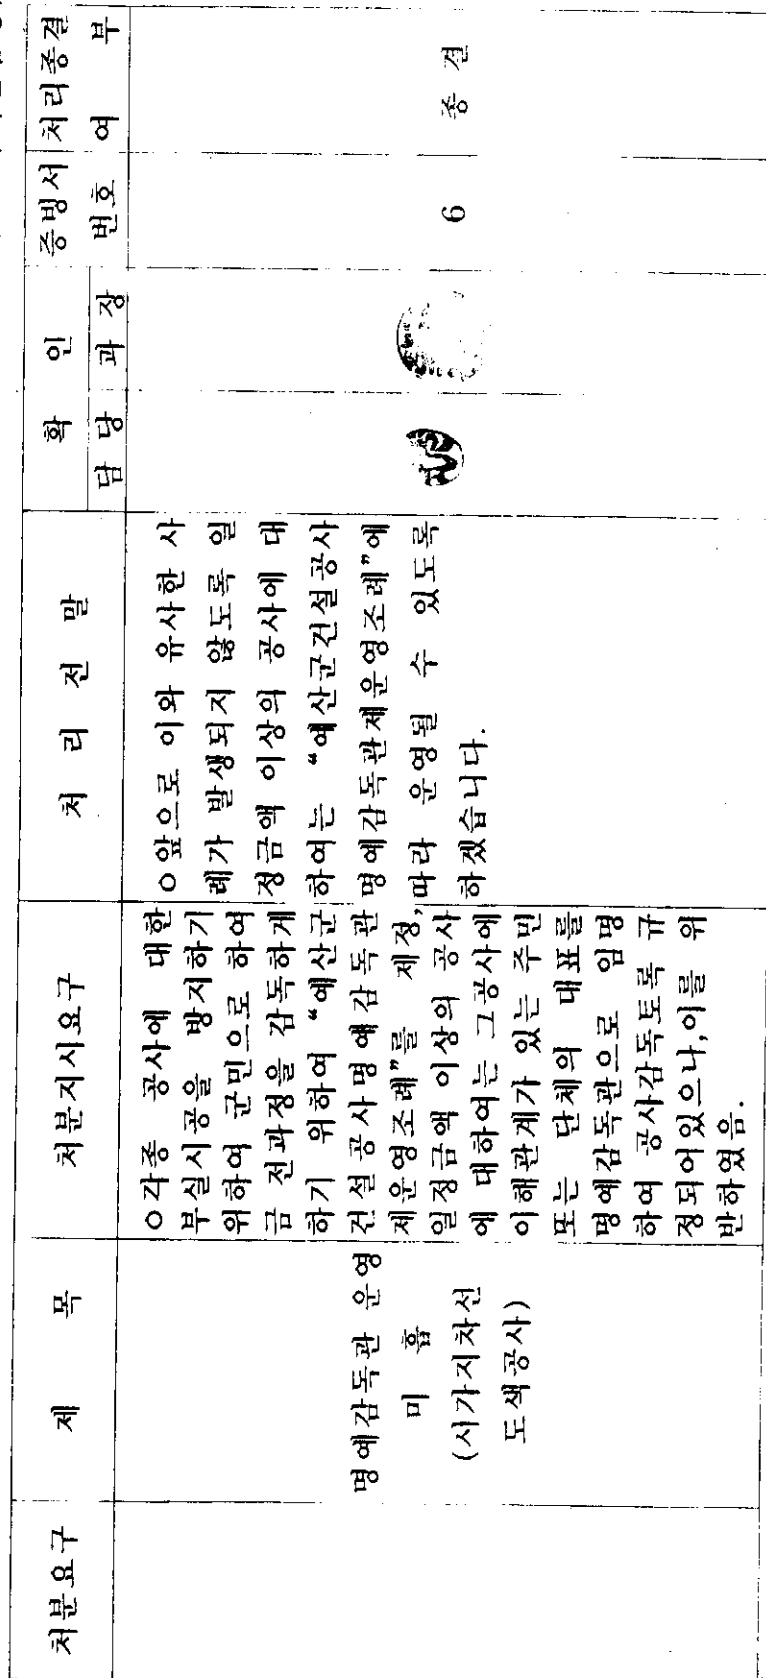 처분요구
제 목
처분지시요구
처 리 전 말
확 인
담 당
과 장
증빙서
번호
처리종결
여 부
명예감독관 운영
미 흡
(시가지차선
도색공사)
○각종 공사에 대한
부실시공을 방지하기
위하여 군민으로 하여
금 전과정을 감독하게
하기 위하여 “예산군
건설공사명예감독관
제운영조례”를 제정,
일정금액 이상의 공사
에 대하여는 그공사에
이해관계가 있는 주민
또는 단체의 대표를
명예감독관으로 임명
하여 공사감독토록 규
정되어있으나,이를 위
반하였음.
○앞으로 이와 유사한 사
례가 발생되지 않도록 일
정금액 이상의 공사에 대
하여는 “예산군건설공사
명예감독관제운영조례”에
따라 운영될 수 있도록
하겠습니다.
6
종 결